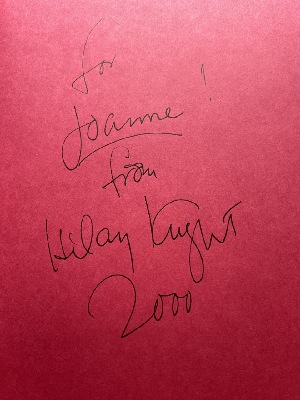 for
Joanne!
from
Hilary Knight
2000